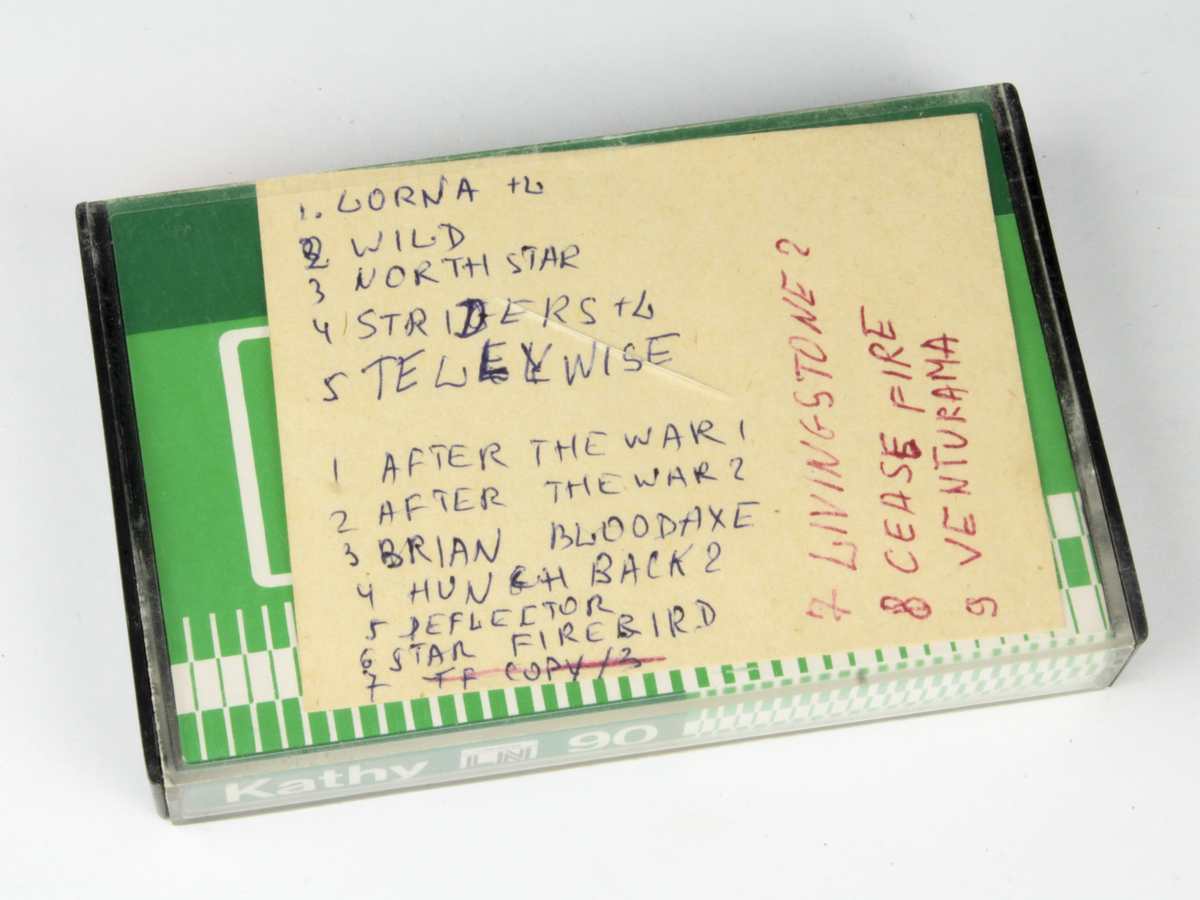 1. LORNA +L
2 WILD
3 NORTH STAR
4 STRIDERS +L
5 TELEXWISE
1 AFTER THE WAR 1
2 AFTER THE WAR 2
3 BRIAN BLOODAXE
4 HUNCH BACK 2
5 DEFLECTOR
6 STAR FIREBIRD
7 TF COPY/3
7 LIVINGSTONE 2
8 CEASE FIRE
9 VENTURAMA
Kathy LN 90